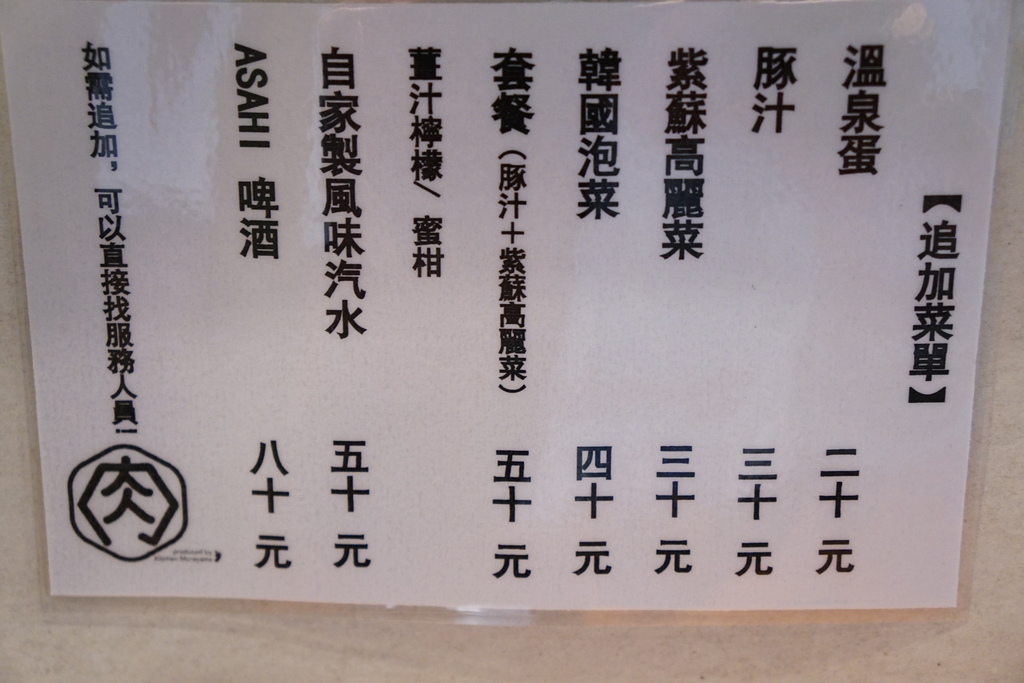 【追加菜單】
溫泉蛋 二十元
豚汁 三十元
紫蘇高麗菜 三十元
韓國泡菜 四十元
套餐(豚汁+紫蘇高麗菜) 五十元
薑汁檸檬/ 蜜柑
自家製風味汽水 五十元
ASAHI 啤酒 八十元
如需追加,可以直接找服務人員!
肉
produced by